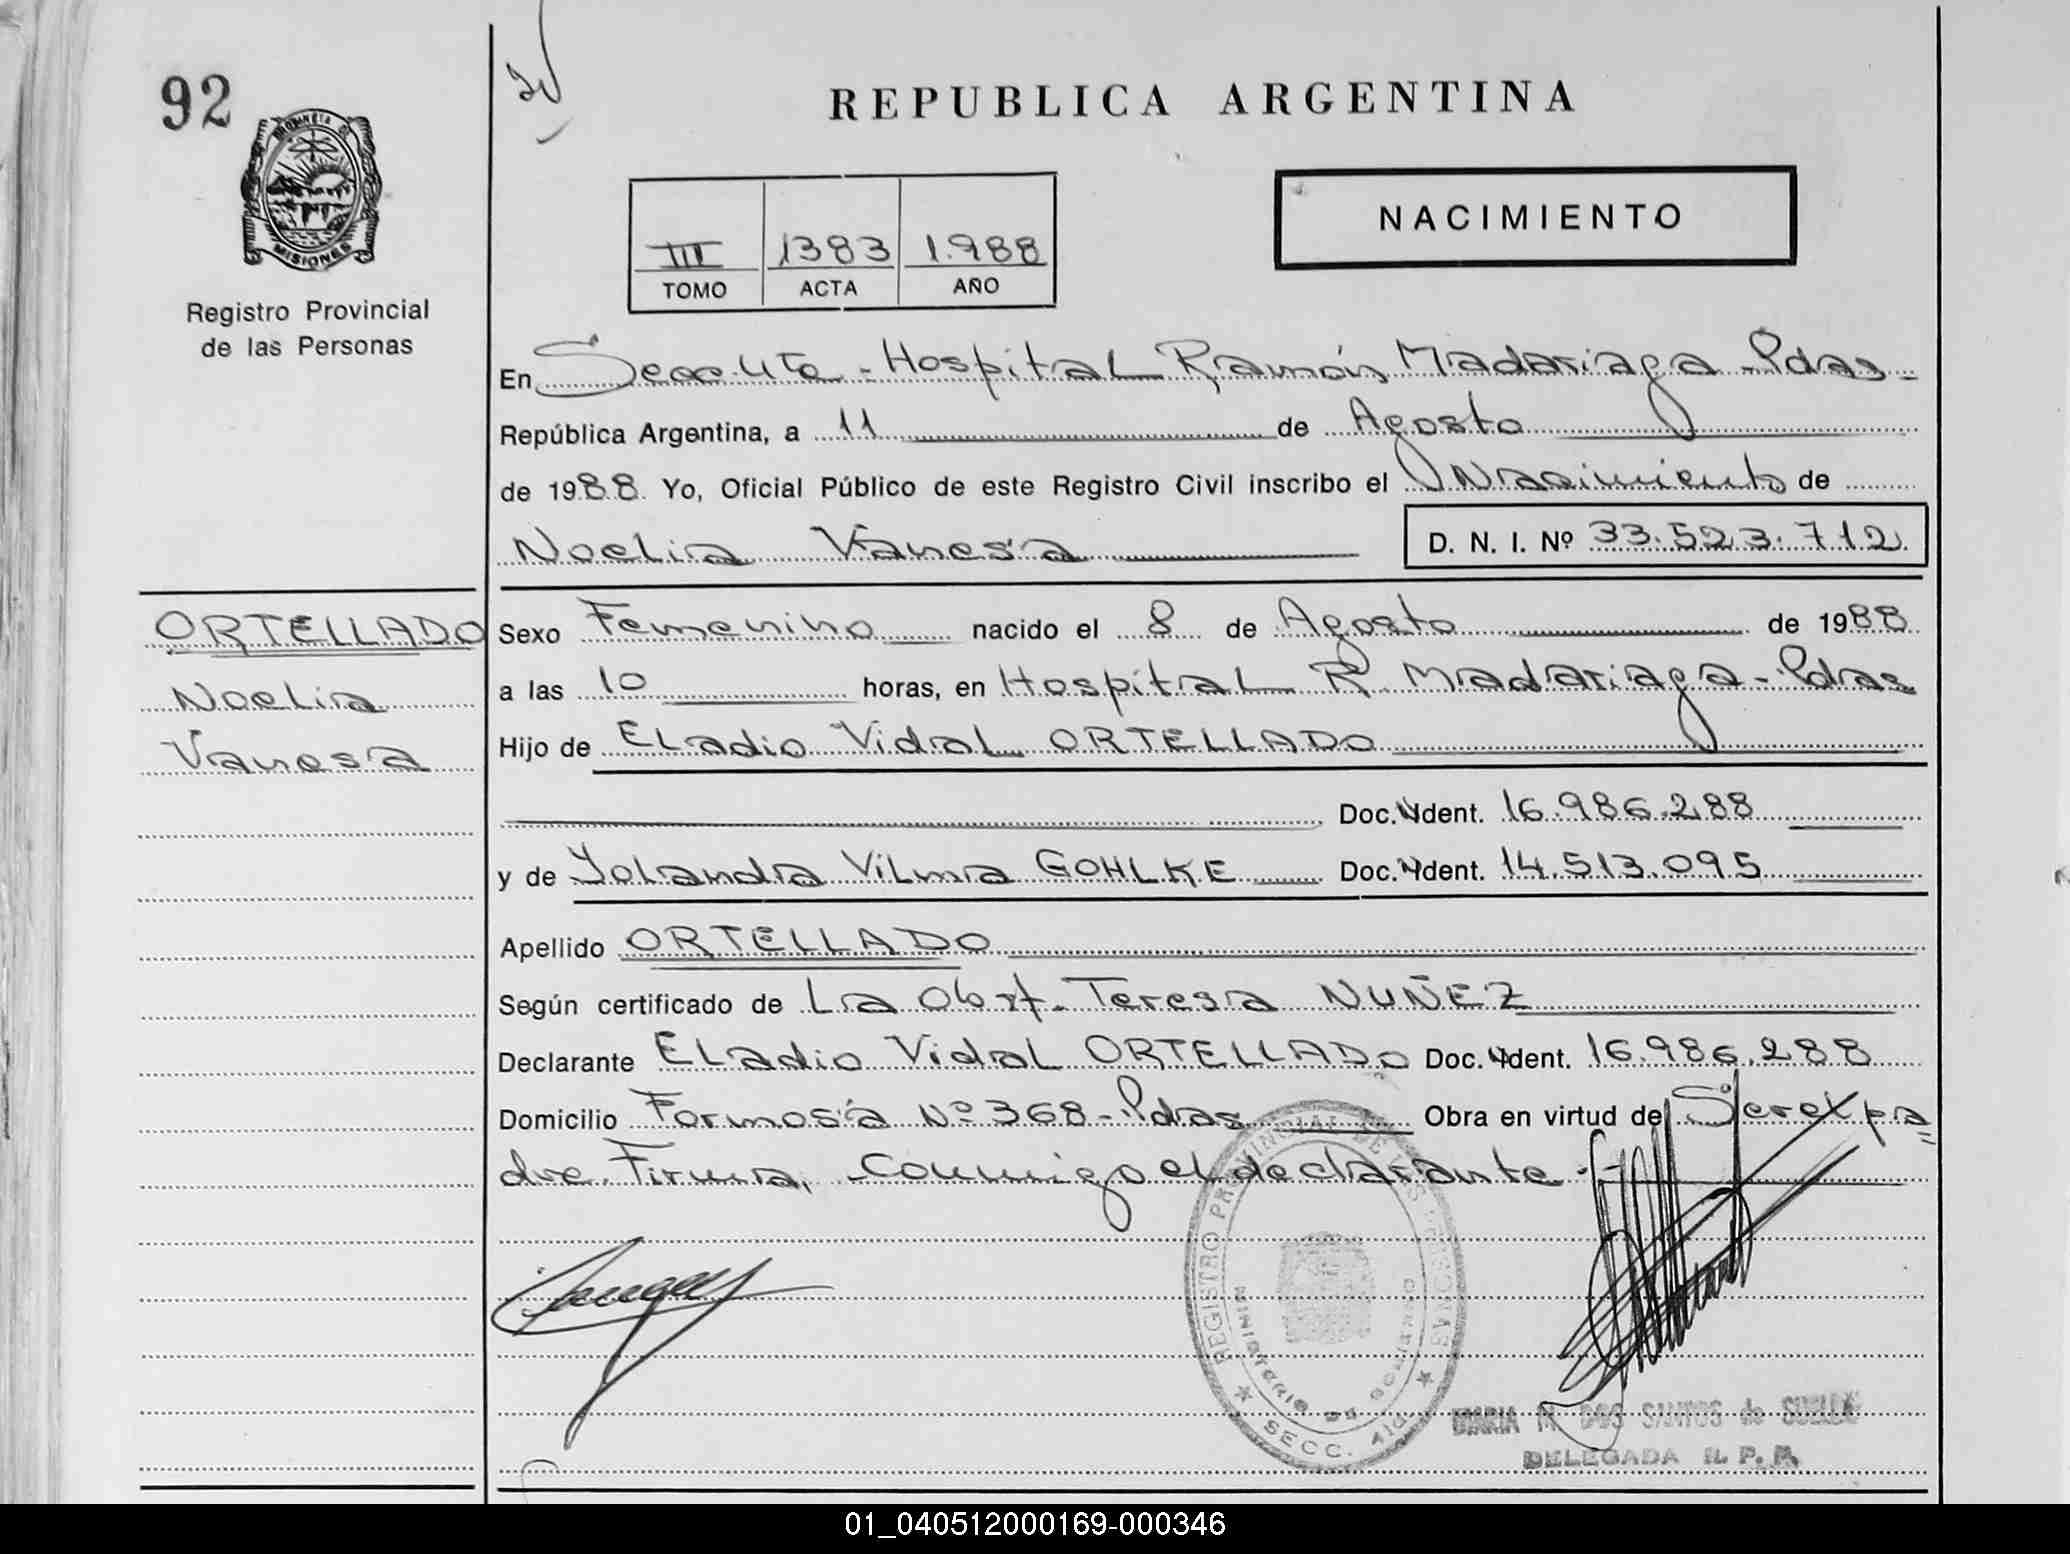 92
PROVINCIA DE
MISIONES
Registro Provincial
de las Personas
REPUBLICA ARGENTINA
III 1383 1.988
TOMO ACTA AÑO
NACIMIENTO
En Secc. 4ta - Hospital Ramón Madariaga - Pdas -
República Argentina, a 11 de Agosto
de 1988 Yo, Oficial Público de este Registro Civil inscribo el Nacimiento de
Noelia Vanesa D. N. I. Nº 33.523.712
ORTELLADO
Noelia
Vanesa
Sexo Femenino nacido el 8 de Agosto de 1988
a las 10 horas, en Hospital R. Madariaga - Pdas
Hijo de Eladio Vidal ORTELLADO
Doc. Ident. 16.986.288
y de Yolanda Vilma GOHLKE Doc. Ident. 14.513.095
Apellido ORTELLADO
Según certificado de La Obst. Teresa NUÑEZ
Declarante Eladio Vidal ORTELLADO Doc. Ident. 16.986.288
Domicilio Formosa Nº 368 - Pdas Obra en virtud de Ser el pa
dre. Firma, conmigo el declarante -
REGISTRO PROVINCIAL DE LAS PERSONAS
MINISTERIO DE GOBIERNO
SECC. 4ta.
MARIA DOS SANTOS de
DELEGADA R. P. P.
01_040512000169-000346